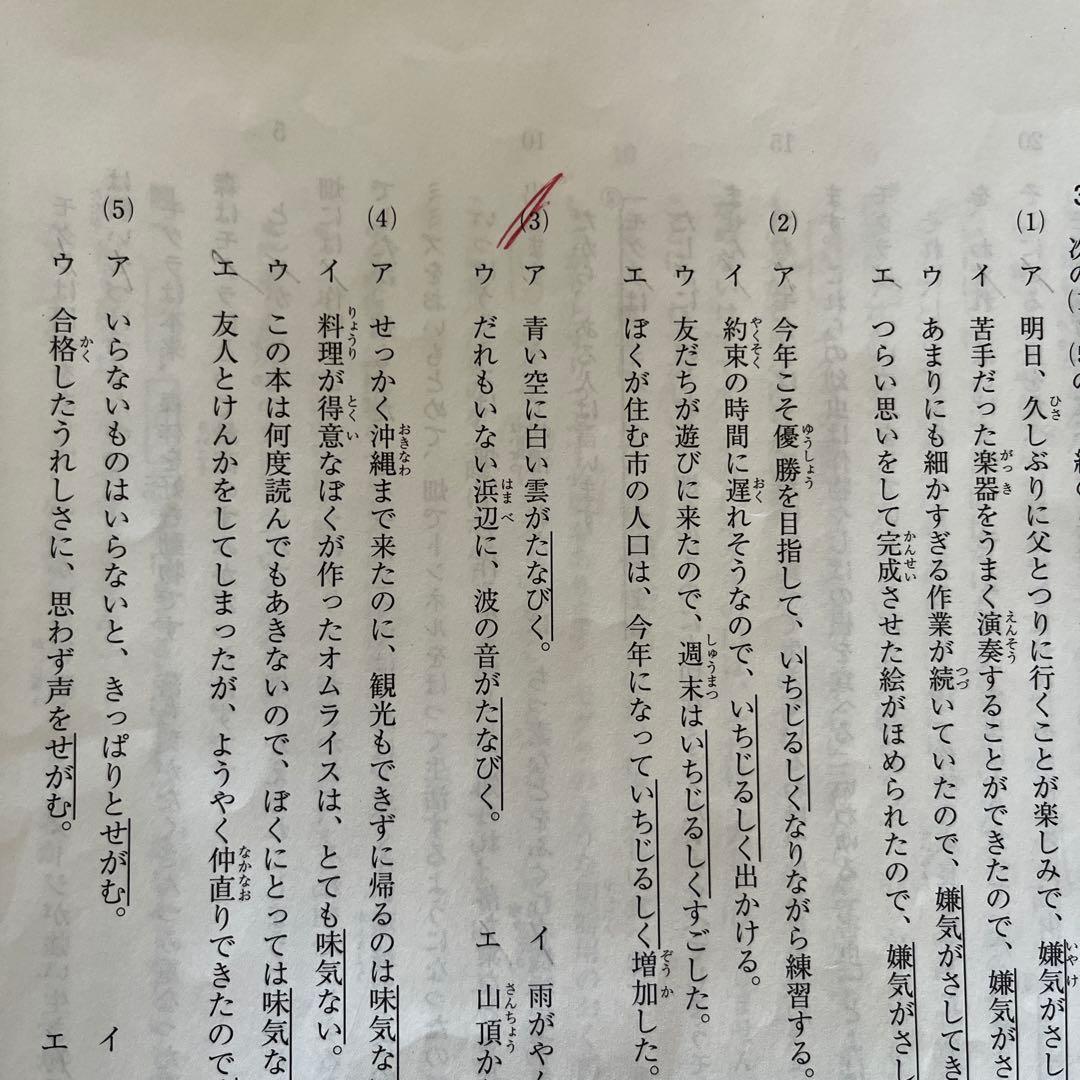 (1)
ア 明日、久しぶりに父とつりに行くことが楽しみで、嫌気がさし
イ 苦手だった楽器をうまく演奏することができたので、嫌気がさ
ウ あまりにも細かすぎる作業が続いていたので、嫌気がさしてき
エ つらい思いをして完成させた絵がほめられたので、嫌気がさし
(2)
ア 今年こそ優勝を目指して、いちじるしくなりながら練習する。
イ 約束の時間に遅れそうなので、いちじるしく出かける。
ウ 友だちが遊びに来たので、週末はいちじるしくすごした。
エ ぼくが住む市の人口は、今年になっていちじるしく増加した。
(3)
ア 青い空に白い雲がたなびく。
イ 雨がや
ウ だれもいない浜辺に、波の音がたなびく。
エ 山頂か
(4)
ア せっかく沖縄まで来たのに、観光もできずに帰るのは味気な
イ 料理が得意なぼくが作ったオムライスは、とても味気ない。
ウ この本は何度読んでもあきないので、ぼくにとっては味気な
エ 友人とけんかをしてしまったが、ようやく仲直りできたので
(5)
ア いらないものはいらないと、きっぱりとせがむ。
イ
ウ 合格したうれしさに、思わず声をせがむ。
エ